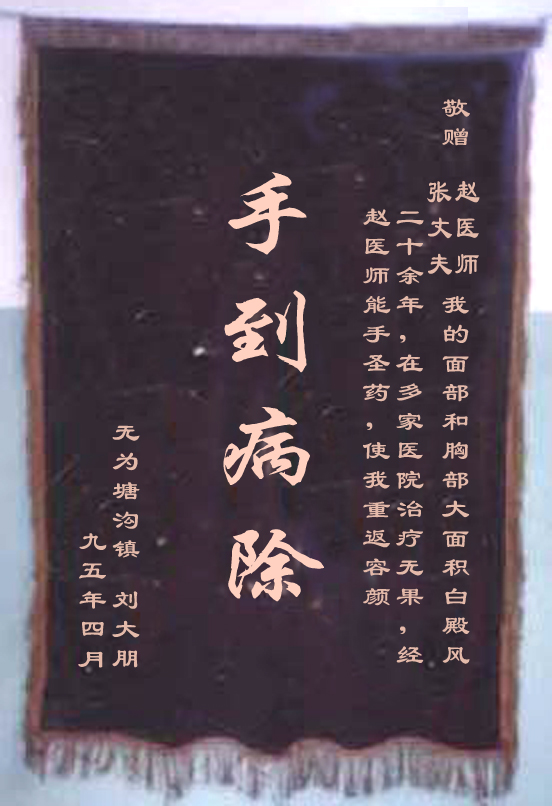 敬赠
赵医师
张丈夫
我的面部和胸部大面积白殿风
二十余年，在多家医院治疗无果，经
赵医师能手圣药，使我重返容颜
手到病除
无为塘沟镇 刘大朋
九五年四月